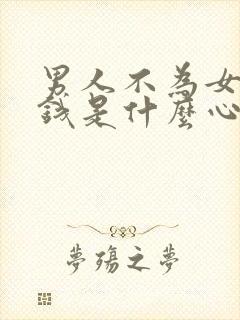 男人不為女
錢是什麼心
夢殤之夢